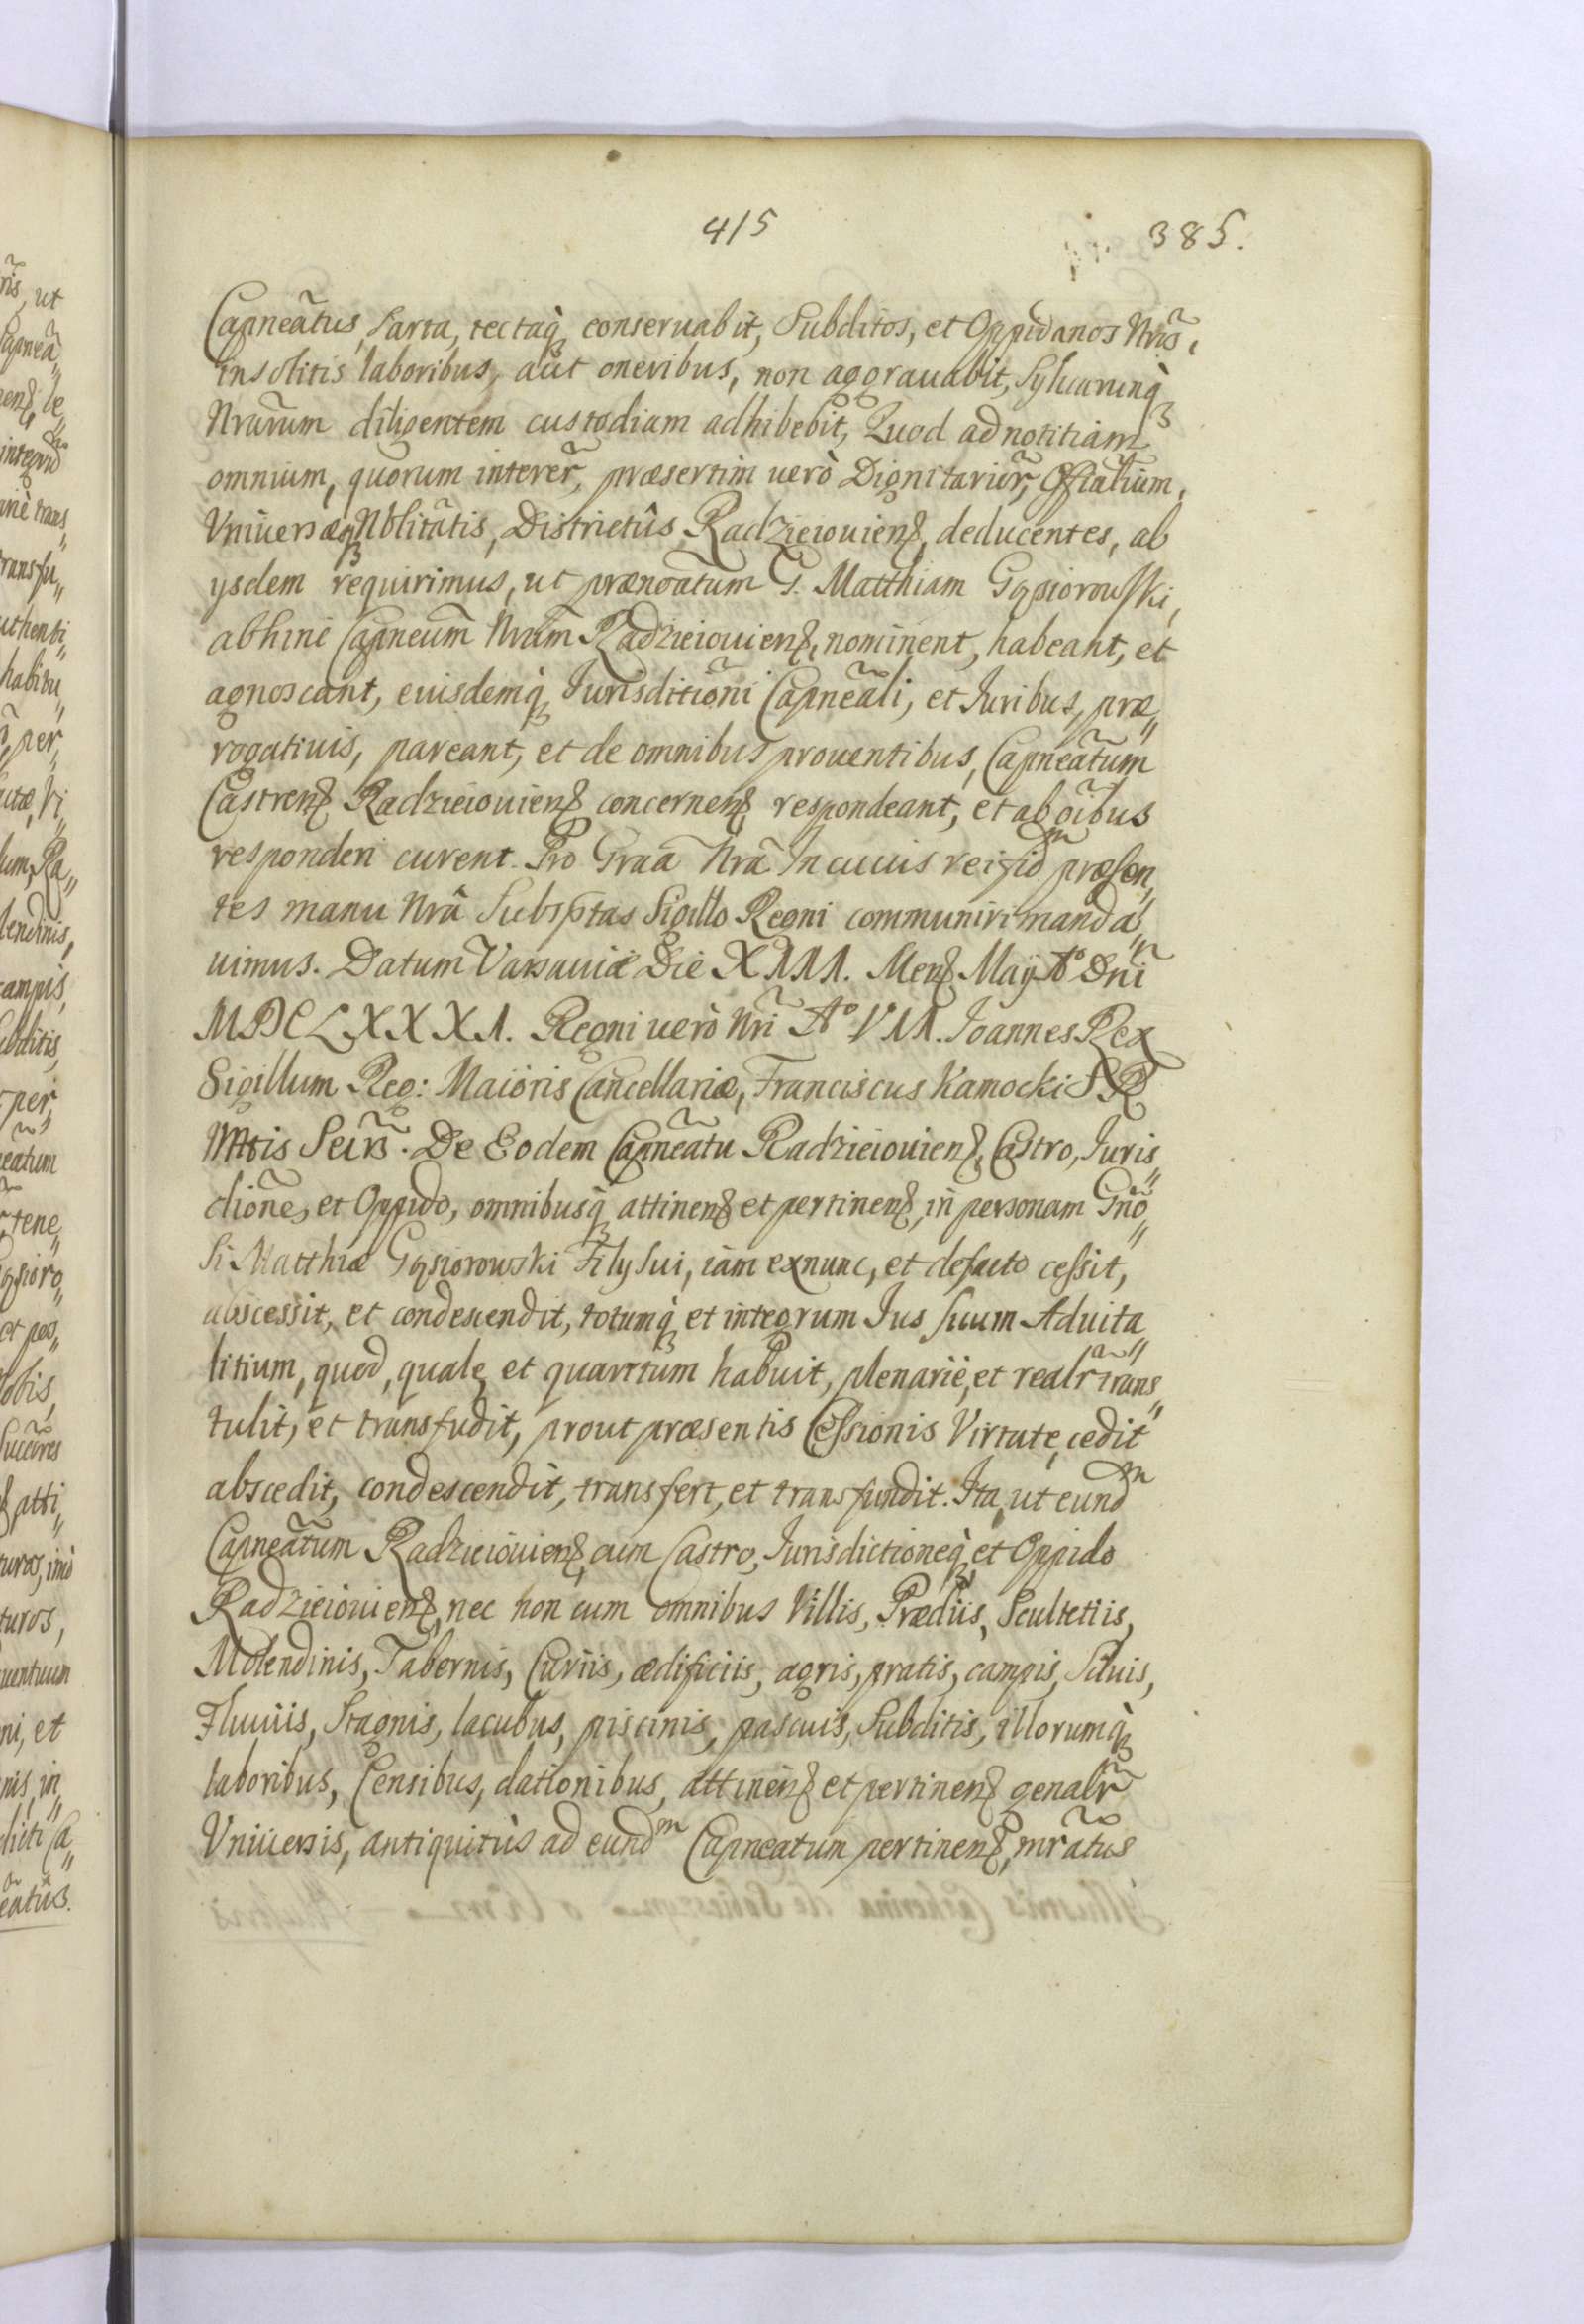 415
385.
Capneãtus, Sarta, tectaq̀ꝫ conseruabit, Subditos, et Oppidanos Nrõs,
insolitis laboribus, aut oneribus, non aggrauabit, Syluarumq̀ꝫ
Nrarũm diligentem custodiam adhibebit, Quod ad notitiam
omnium, quorum interer̃, præsertim uerò Dignitariur̃, Offialium,
Vniuersæqꝫ Nblitãtis, Districtûs Radzieiouienß, deducentes, ab
ysdem requirimus, ut prænoãtum G. Matthiam Gąsiorowski,
abhinc Capneum̃ Nrum̃ Radzieiouienß, nominent, habeant, et
agnoscant, euisdemq̀ꝫ Jurisditioñi Capneãli, et Juribus, præ„
rogatiuis, pareant, et de omnibus prouentibus, Capneãtum
Castrenß Radzieiouienß concernenß respondeant, et ab oĩbus
responderi curent. Pro Graã Nrã In cuuis rei fidᵐ præsen„
tes manu Nrâ Subsptas Sigillo Regni communiri manda„
uimus. Datum Varsauiæ Die XIII. Menß May Aº Dñi
MDCLXXXI. Regni uerò Nrĩ Aº VII. Joannes Rex
Sigillum Reg: Maioris Cancellariæ, Franciscus Kamocki SR
Mttis Secrs̃. De Eodem Capneãtu Radzieiouienß, Castro, Juris„
dioñe, et Oppido, omnibusq̀ꝫ attinenß et pertinenß, in personam Gño„
si Matthiæ Gąsiorowski Fily sui, iam exnunc, et defacto cessit,
abscessit, et condescendit, totumq̀ꝫ et integrum Jus suum Aduita„
litium, quod, quale, et quantum habuit, plenariè, et realr̃ trans„
tulit, et transfudit, prout præsentis Cessionis Virtute, cedit
abscedit, condescendit, transfert, et transfundit. Ita, ut eundᵐ
Capneãtum Radzieiouienß, cum Castro, Jurisdictioneq̀ꝫ et Oppido
Radzieiouienß, nec non cum omnibus Villis, Prædiis, Scultetiis,
Molendinis, Tabernis, Curiis, ædificiis, agris, pratis, campis, Siluis,
Fluuiis, Stagnis, lacubus, piscinis, pascuis, Subditis, illorumq̀ꝫ
laboribus, Censibus, dationibus, attinenß et pertinenß genalr̃
Vniuersis, antiquitùs ad eundᵐ Capneatum pertinenß, mr̃atus